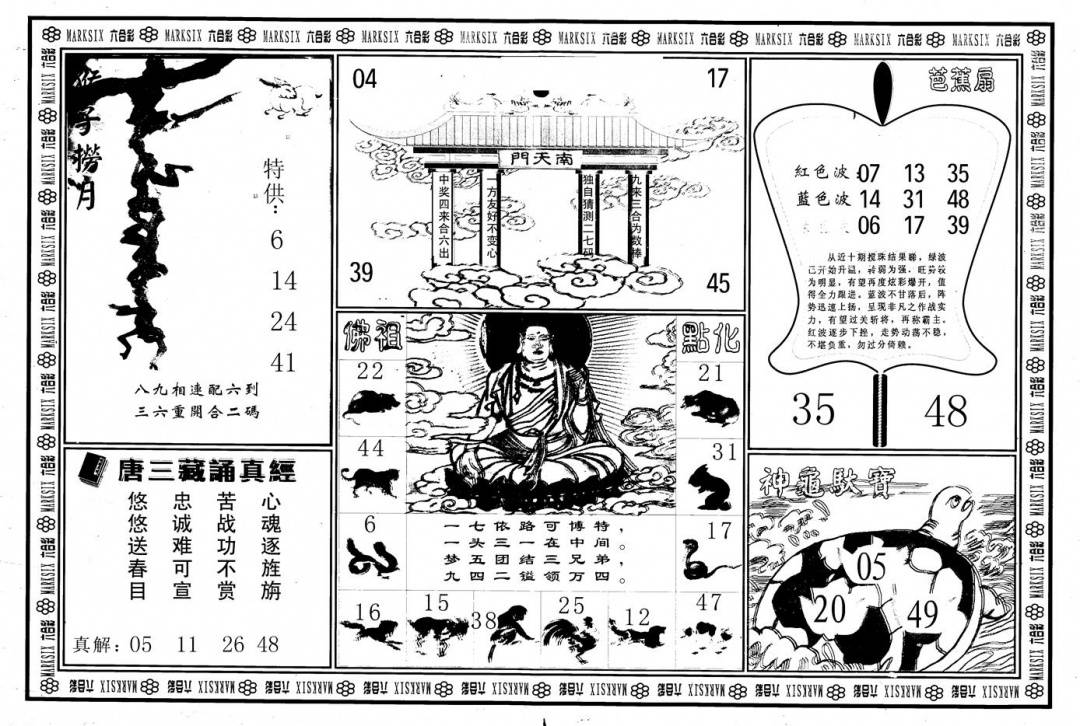 MARKSIX 六合彩 MARKSIX 六合彩 MARKSIX 六合彩 MARKSIX 六合彩 MARKSIX 六合彩 MARKSIX 六合彩 MARKSIX 六合彩 MARKSIX 六合彩 MARKSIX 六合彩 MARKSIX 六合彩
猴子撈月
特供：
6
14
24
41
八九相連配六到
三六重開合二碼
唐三藏誦真經
心魂逐旌旃
苦战功不赏
忠诚难可宣
悠悠送春目
真解：05 11 26 48
04
17
南天門
中奖四来合六出
一方友好不变心
独自猜测二七码
九来三合为数棒
39
45
佛祖
點化
22
21
44
31
6
17
一七依路可博特，
一头三一在中间。
梦五团结三兄弟，
九四二镒领万四。
16
15
38
25
12
47
芭蕉扇
紅色波：07 13 35
藍色波 14 31 48
06 17 39
从近十期搅珠结果睇，绿波
已开始升温，转弱为强，旺势较
为明显，有望再度炫彩爆开，值
得全力跟进。蓝波不甘落后，阵
势迅速上扬，呈现非凡之作战实
力，有望过关斩将，再称霸主。
红波逐步下挫，走势动荡不稳，
不堪负重，勿过分倚赖。
35
48
神龜馱寶
05
20
49